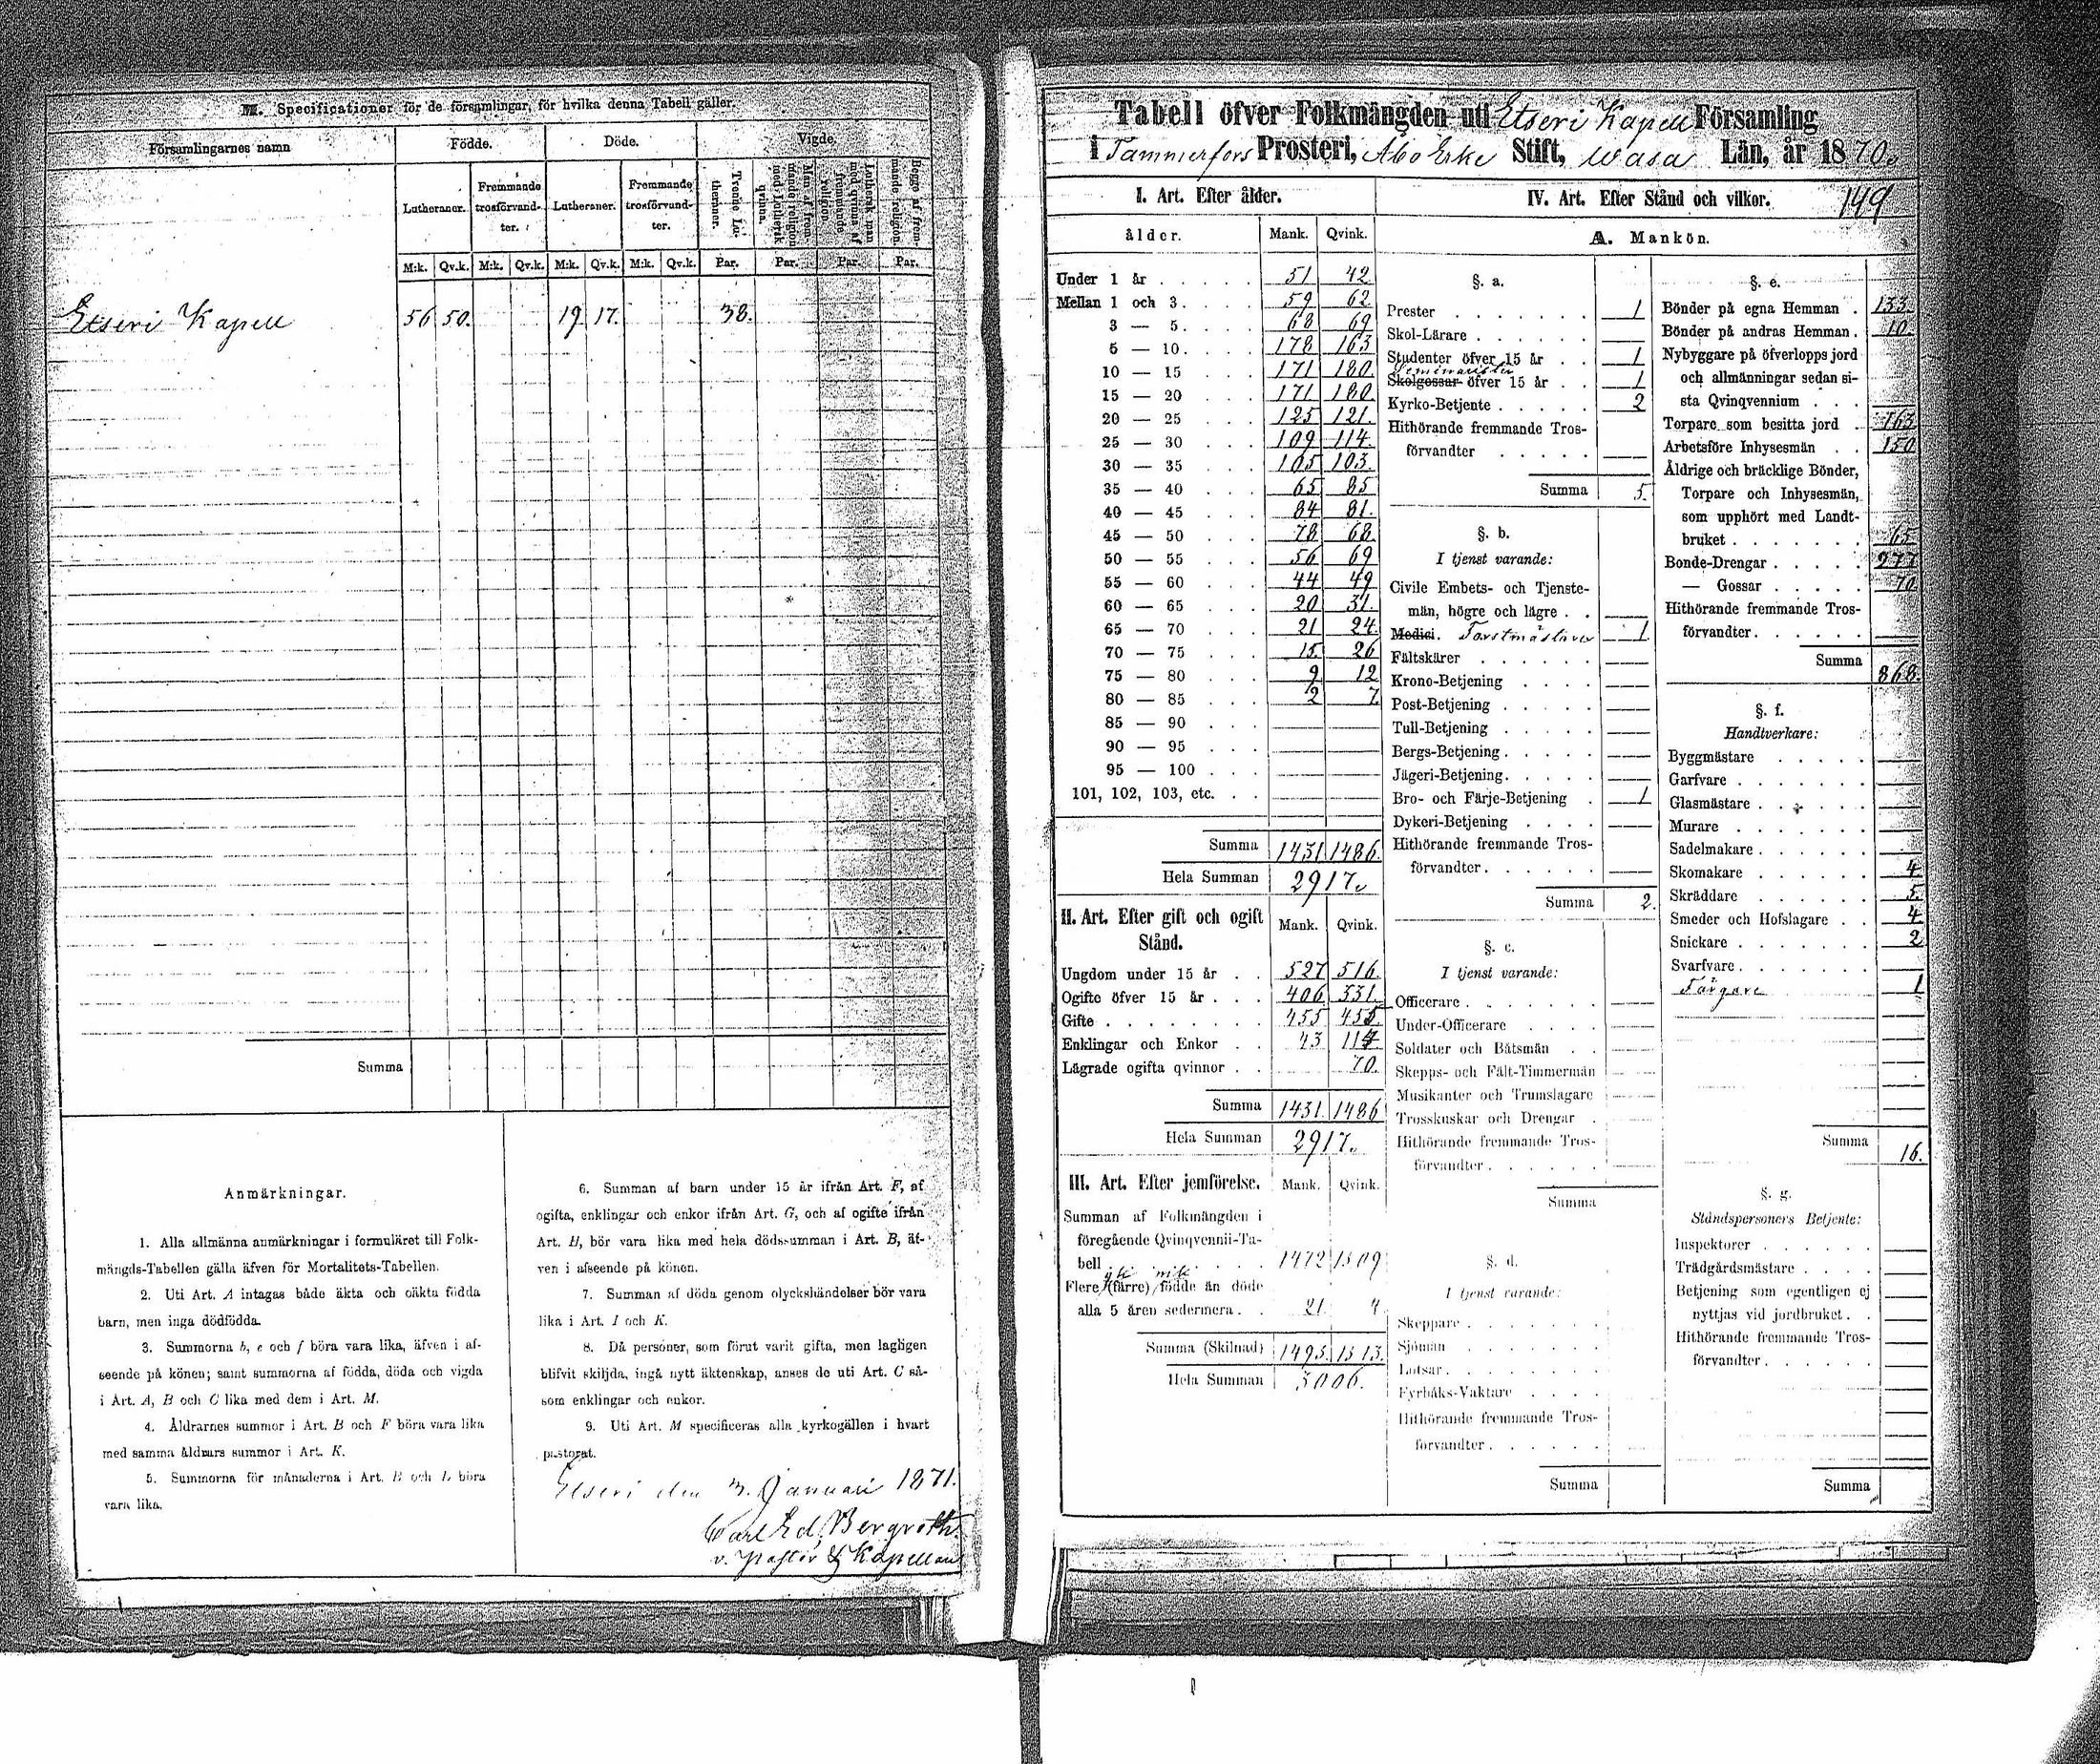 M. Specificationer för de församlingar, för hvilka denna Tabell gäller.
Församlingarnes namn Födde. Döde. Vigde
Lutheraner. Fremmande trosförvandter. Lutheraner. Fremmande trosförvandter. Trenne Lutheraner.
M:k. Qv.k. M:k. Qv.k. M:k. Qv.k. M:k. Qv.k. Par. Par. Par. Par.
Etseri Kapell 56 50. 19 17. 38.
Summa
Anmärkningar.
1. Alla allmänna anmärkningar i formuläret till Folk-
mängds-Tabellen gälla äfven för Mortalitets-Tabellen.
2. Uti Art. A intagas både äkta och oäkta födda
barn, men inga dödfödda.
3. Summorna b, e och f böra vara lika, äfven i af-
seende på könen; samt summorna af födda, döda och vigda
i Art. A, B och C lika med dem i Art. M.
4. Åldrarnes summor i Art. B och F böra vara lika
med samma åldrars summor i Art. K.
5. Summorna för månaderna i Art. B och L böra
vara lika.
6. Summan af barn under 15 år ifrån Art. F, af
ogifta, enklingar och enkor ifrån Art. G, och af ogifte ifrån
Art. H, bör vara lika med hela dödssumman i Art. B, äf-
ven i afseende på könen.
7. Summan af döda genom olyckshändelser bör vara
lika i Art. I och K.
8. Då personer, som förut varit gifta, men lagligen
blifvit skiljda, ingå nytt äktenskap, anses de uti Art. C så-
som enklingar och enkor.
9. Uti Art. M specificeras alla kyrkogällen i hvart
pastorat.
Etseri den 3. Januari 1871.
Carl Ed. Bergroth.
v. Pastor & Kapellan
Tabell öfver Folkmängden uti Etseri Kapell Församling
i Tammerfors Prosteri, Åbo Erke Stift, Wasa Län, år 1870.
149
I. Art. Efter ålder.
ålder. Mank. Qvink.
Under 1 år 51 42
Mellan 1 och 3. 59 62
3 — 5. 68 69
5 — 10. 178 163
10 — 15 171 180.
15 — 20 171 180
20 — 25 125 121.
25 — 30 109 114.
30 — 35 105 103.
35 — 40 65 85
40 — 45 84 81.
45 — 50 78 68.
50 — 55 56 69
55 — 60 44 49
60 — 65 20 31.
65 — 70 21 24
70 — 75 15. 26
75 — 80 9 12
80 — 85 2 7.
85 — 90
90 — 95
95 — 100
101, 102, 103, etc.
Summa 1431 1486.
Hela Summan 2917.
II. Art. Efter gift och ogift Stånd. Mank. Qvink.
Ungdom under 15 år 527 516.
Ogifte öfver 15 år 406 331.
Gifte 455 455.
Enklingar och Enkor 43 114
Lägrade ogifta qvinnor 70.
Summa 1431. 1486
Hela Summan 2917.
III. Art. Efter jemförelse. Mank. Qvink.
Summan af Folkmängden i
föregående Qvinqvennii-Ta-
bell 1472 1509
Flere (färre) födde än döde
alla 5 åren sedermera 21. 4.
Summa (Skilnad) 1493. 1513.
Hela Summan 3006.
IV. Art. Efter Stånd och vilkor.
A. Mankön.
§. a.
Prester 1
Skol-Lärare
Studenter öfver 15 år 1
Seminarister
Skolgossar öfver 15 år 1
Kyrko-Betjente 2
Hithörande fremmande Tros-
förvandter
Summa 5.
§. b.
I tjenst varande:
Civile Embets- och Tjenste-
män, högre och lägre
Medici. Forstmästare 1
Fältskärer
Krono-Betjening
Post-Betjening
Tull-Betjening
Bergs-Betjening
Jägeri-Betjening
Bro- och Färje-Betjening 1
Dykeri-Betjening
Hithörande fremmande Tros-
förvandter
Summa 2.
§. c.
I tjenst varande:
Officerare
Under-Officerare
Soldater och Båtsmän
Skepps- och Fält-Timmermän
Musikanter och Trumslagare
Trosskuskar och Drengar
Hithörande fremmande Tros-
förvandter
Summa
§. d.
I tjenst varande:
Skeppare
Sjömän
Lotsar
Fyrbåks-Vaktare
Hithörande fremmande Tros-
förvandter
Summa
§. e.
Bönder på egna Hemman 133.
Bönder på andras Hemman 10.
Nybyggare på öfverlopps jord
och allmänningar sedan si-
sta Qvinqvennium
Torpare som besitta jord 163
Arbetsföre Inhysesmän 150
Åldrige och bräcklige Bönder,
Torpare och Inhysesmän,
som upphört med Landt-
bruket 65
Bonde-Drengar 277
— Gossar 70
Hithörande fremmande Tros-
förvandter
Summa 868.
§. f.
Handtverkare:
Byggmästare
Garfvare
Glasmästare
Murare
Sadelmakare
Skomakare 4
Skräddare 5.
Smeder och Hofslagare 4
Snickare 2
Svarfvare
Färgare 1
Summa 16.
§. g.
Ståndspersoners Betjente:
Inspektorer
Trädgårdsmästare
Betjening som egentligen ej
nyttjas vid jordbruket
Hithörande fremmande Tros-
förvandter
Summa